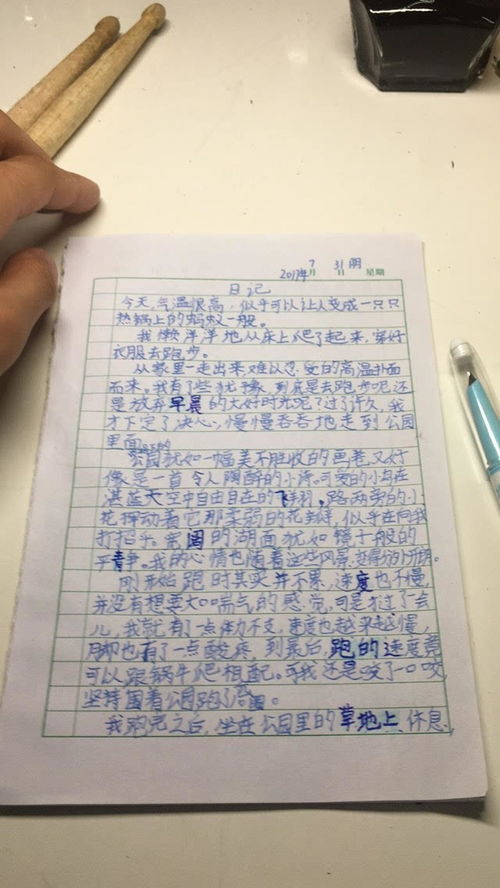 2017年7月31日 星期 阴
日记
今天,气温很高,似乎可以让人变成一只只
热锅上的蚂蚁一般。
我懒洋洋地从床上爬了起来,穿好
衣服去跑步。
从家里一走出来难以忍受的高温扑面
而来。我有了些犹豫,到底是去跑步呢还
是放弃早晨的大好时光呢?过了许久,我
才下定了决心,慢慢吞吞地走到公园
里面。
公园犹如一幅美不胜收的画卷,又好
像是一首令人陶醉的小诗。可爱的小鸟在
湛蓝天空中自由自在的飞翔。路两旁的小
花挥动着它那柔弱的花瓣,似乎在向我
打招乎。宽阔的湖面犹如镜子般的
平静。我的心情也随着这些风景变得分外开朗。
刚开始跑时其实并不累,速度也不慢,
并没有想要大口喘气的感觉,可是才过了一会
儿,我就有了一点体力不支,速度也越来越慢,
脚也有了一点酸疼,到最后,跑的速度竟
可以跟蜗牛爬相配。可我还是咬了一口咬
坚持围着公园跑了
我跑完之后,坐在公园里的草地上,休息